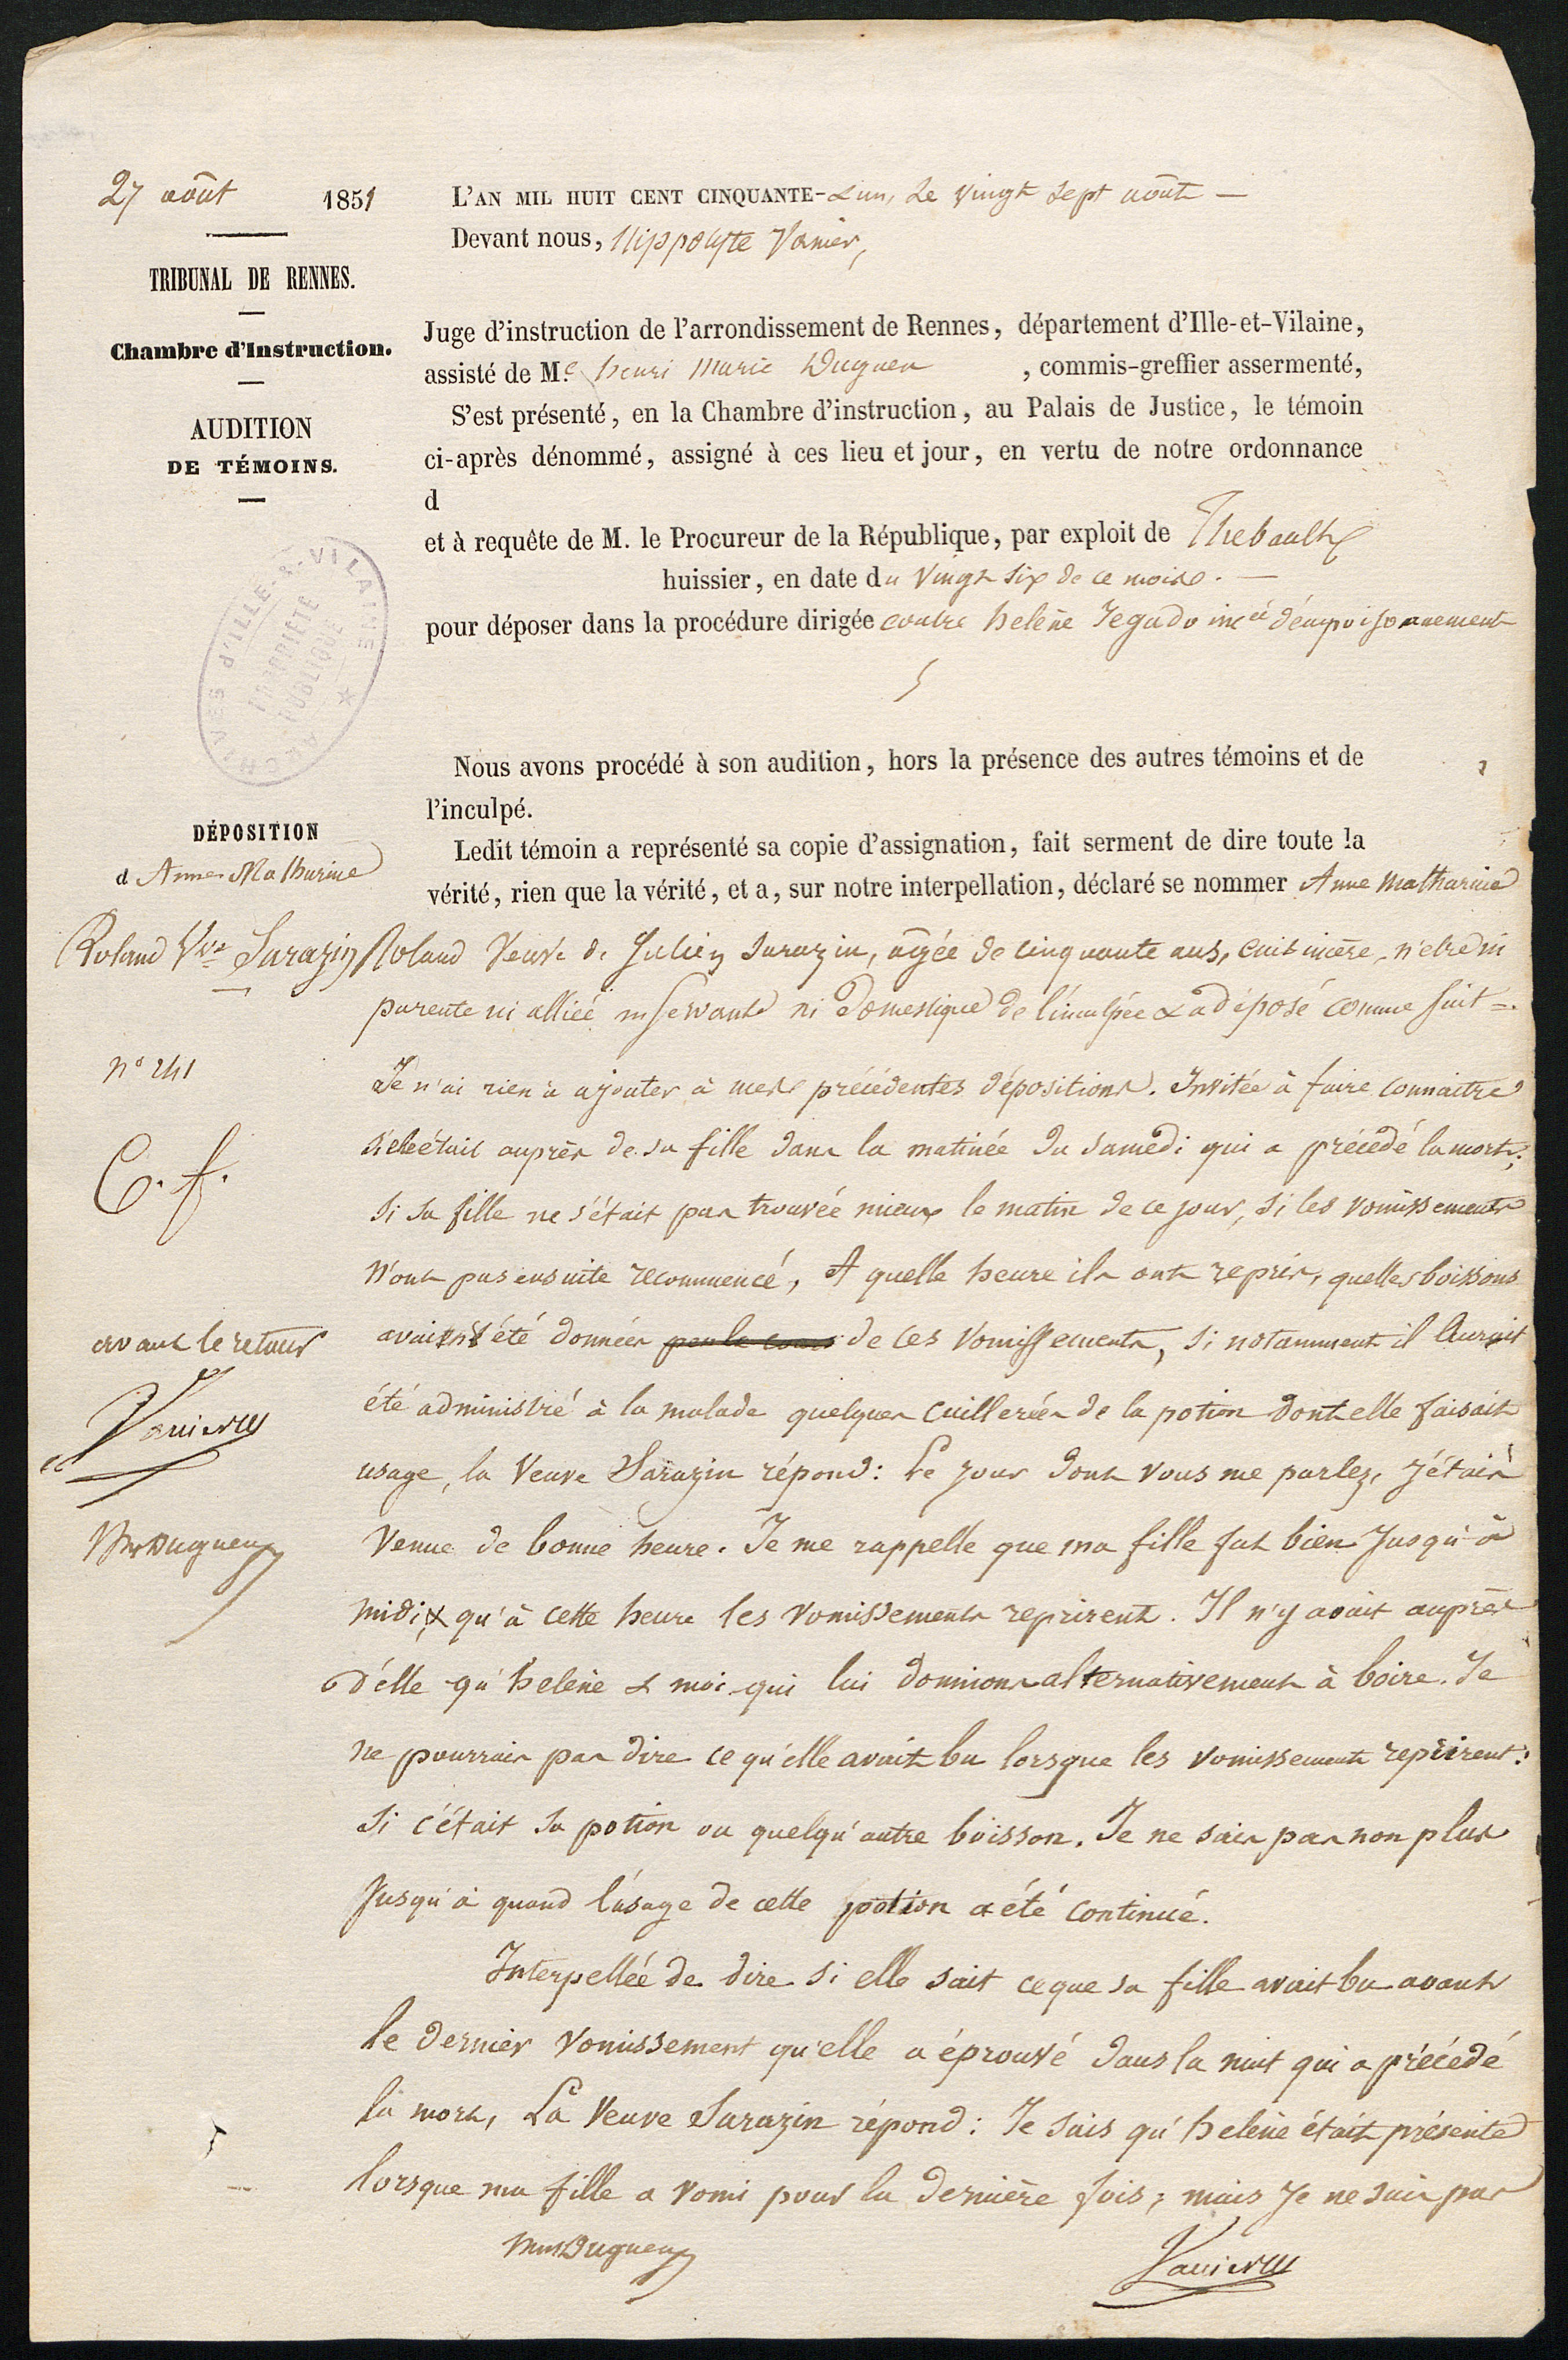 27 août 1851
TRIBUNAL DE RENNES.
Chambre d'Instruction.
AUDITION
DE TÉMOINS.
ARCHIVES d'ILLE-&-VILAINE *
PROPRIÉTÉ
PUBLIQUE
L'AN MIL HUIT CENT CINQUANTE-&un, le vingt sept août —
Devant nous, Hippolyte Vanier,
Juge d'instruction de l'arrondissement de Rennes, département d'Ille-et-Vilaine,
assisté de Me henri Marie Duguen, commis-greffier assermenté,
S'est présenté, en la Chambre d'instruction, au Palais de Justice, le témoin
ci-après dénommé, assigné à ces lieu et jour, en vertu de notre ordonnance
d
et à requête de M. le Procureur de la République, par exploit de Thebault
huissier, en date du vingt six de ce mois. —
pour déposer dans la procédure dirigée contre helène Jegado incée d'empoisonnement
Nous avons procédé à son audition, hors la présence des autres témoins et de
l'inculpé.
Ledit témoin a représenté sa copie d'assignation, fait serment de dire toute la
vérité, rien que la vérité, et a, sur notre interpellation, déclaré se nommer Anne Mathurine
DÉPOSITION
d Anne Mathurine
Roland Vve Sarazin
Roland Veuve de Julien Sarazin, agée de cinquante ans, cuisinière, n'etre ni
parente ni alliée ni servante ni domestique de l'inculpée & a déposé comme suit =.
n° 241
C. f.
Je n'ai rien à ajouter à mes précédentes dépositions. Invitée à faire connaitre
si elle était auprès de sa fille dans la matinée du samedi qui a précédé la mort;
si sa fille ne s'était pas trouvée mieux le matin de ce jour, si les vomissements
n'ont pas ensuite recommencé, A quelle heure ils ont repris, quelles boissons
avaient été données par le cours de ces vomissements, si notamment il aurait
avant le retour
Vanier
Duguen
été administré à la malade quelques cuillerées de la potion dont elle faisait
usage, la Veuve Sarazin répond: Le jour dont vous me parlez, j'étais
venue de bonne heure. Je me rappelle que ma fille fut bien jusqu'à
midi, & qu'à cette heure les vomissements reprirent. Il n'y avait auprès
d'elle qu'helène & moi qui lui donnions alternativement à boire. Je
ne pourrais pas dire ce qu'elle avait bu lorsque les vomissements reprirent:
si c'était sa potion ou quelqu'autre boisson. Je ne sais pas non plus
jusqu'à quand l'usage de cette potion a été continué.
Interpellée de dire si elle sait ce que sa fille avait bu avant
le dernier vomissement qu'elle a éprouvé dans la nuit qui a précédé
la mort, La Veuve Sarazin répond: Je sais qu'helène était présente
lorsque ma fille a vomi pour la dernière fois; mais je ne sais pas
Duguen
Vanier